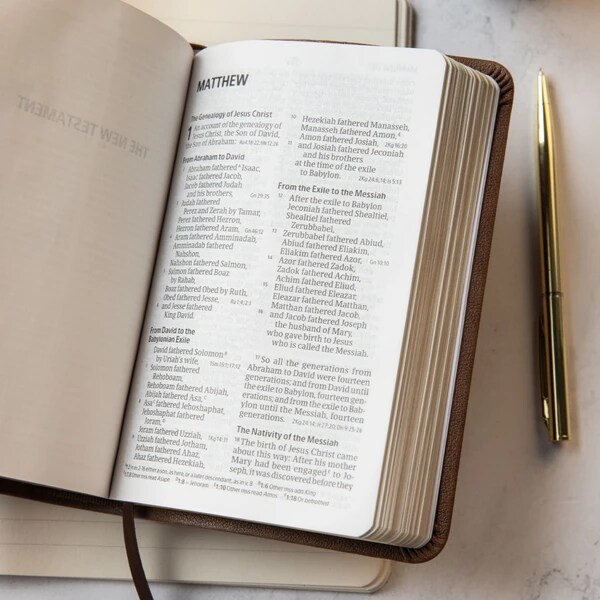 THE NEW TESTAMENT
MATTHEW
The Genealogy of Jesus Christ
1 An account of the genealogy of
Jesus Christ, the Son of David,
the Son of Abraham:
From Abraham to David
2 Abraham fathered Isaac,
Isaac fathered Jacob,
Jacob fathered Judah
and his brothers,
3 Judah fathered
Perez and Zerah by Tamar,
Perez fathered Hezron,
Hezron fathered Aram,
4 Aram fathered Amminadab,
Amminadab fathered
Nahshon,
Nahshon fathered Salmon,
5 Salmon fathered Boaz
by Rahab,
Boaz fathered Obed by Ruth,
Obed fathered Jesse,
6 and Jesse fathered
King David.
From David to the
Babylonian Exile
David fathered Solomon
by Uriah's wife,
7 Solomon fathered
Rehoboam,
Rehoboam fathered Abijah,
Abijah fathered Asa,
8 Asa fathered Jehoshaphat,
Jehoshaphat fathered
Joram,
Joram fathered Uzziah,
9 Uzziah fathered Jotham,
Jotham fathered Ahaz,
Ahaz fathered Hezekiah,
10 Hezekiah fathered Manasseh,
Manasseh fathered Amon,
Amon fathered Josiah,
11 and Josiah fathered Jeconiah
and his brothers
at the time of the exile
to Babylon.
From the Exile to the Messiah
12 After the exile to Babylon
Jeconiah fathered Shealtiel,
Shealtiel fathered
Zerubbabel,
13 Zerubbabel fathered Abiud,
Abiud fathered Eliakim,
Eliakim fathered Azor,
14 Azor fathered Zadok,
Zadok fathered Achim,
Achim fathered Eliud,
15 Eliud fathered Eleazar,
Eleazar fathered Matthan,
Matthan fathered Jacob,
16 and Jacob fathered Joseph
the husband of Mary,
who gave birth to Jesus
who is called the Messiah.
17 So all the generations from
Abraham to David were fourteen
generations; and from David until
the exile to Babylon, fourteen gen-
erations; and from the exile to Bab-
ylon until the Messiah, fourteen
generations.
The Nativity of the Messiah
18 The birth of Jesus Christ came
about this way: After his mother
Mary had been engaged to Jo-
seph, it was discovered before they